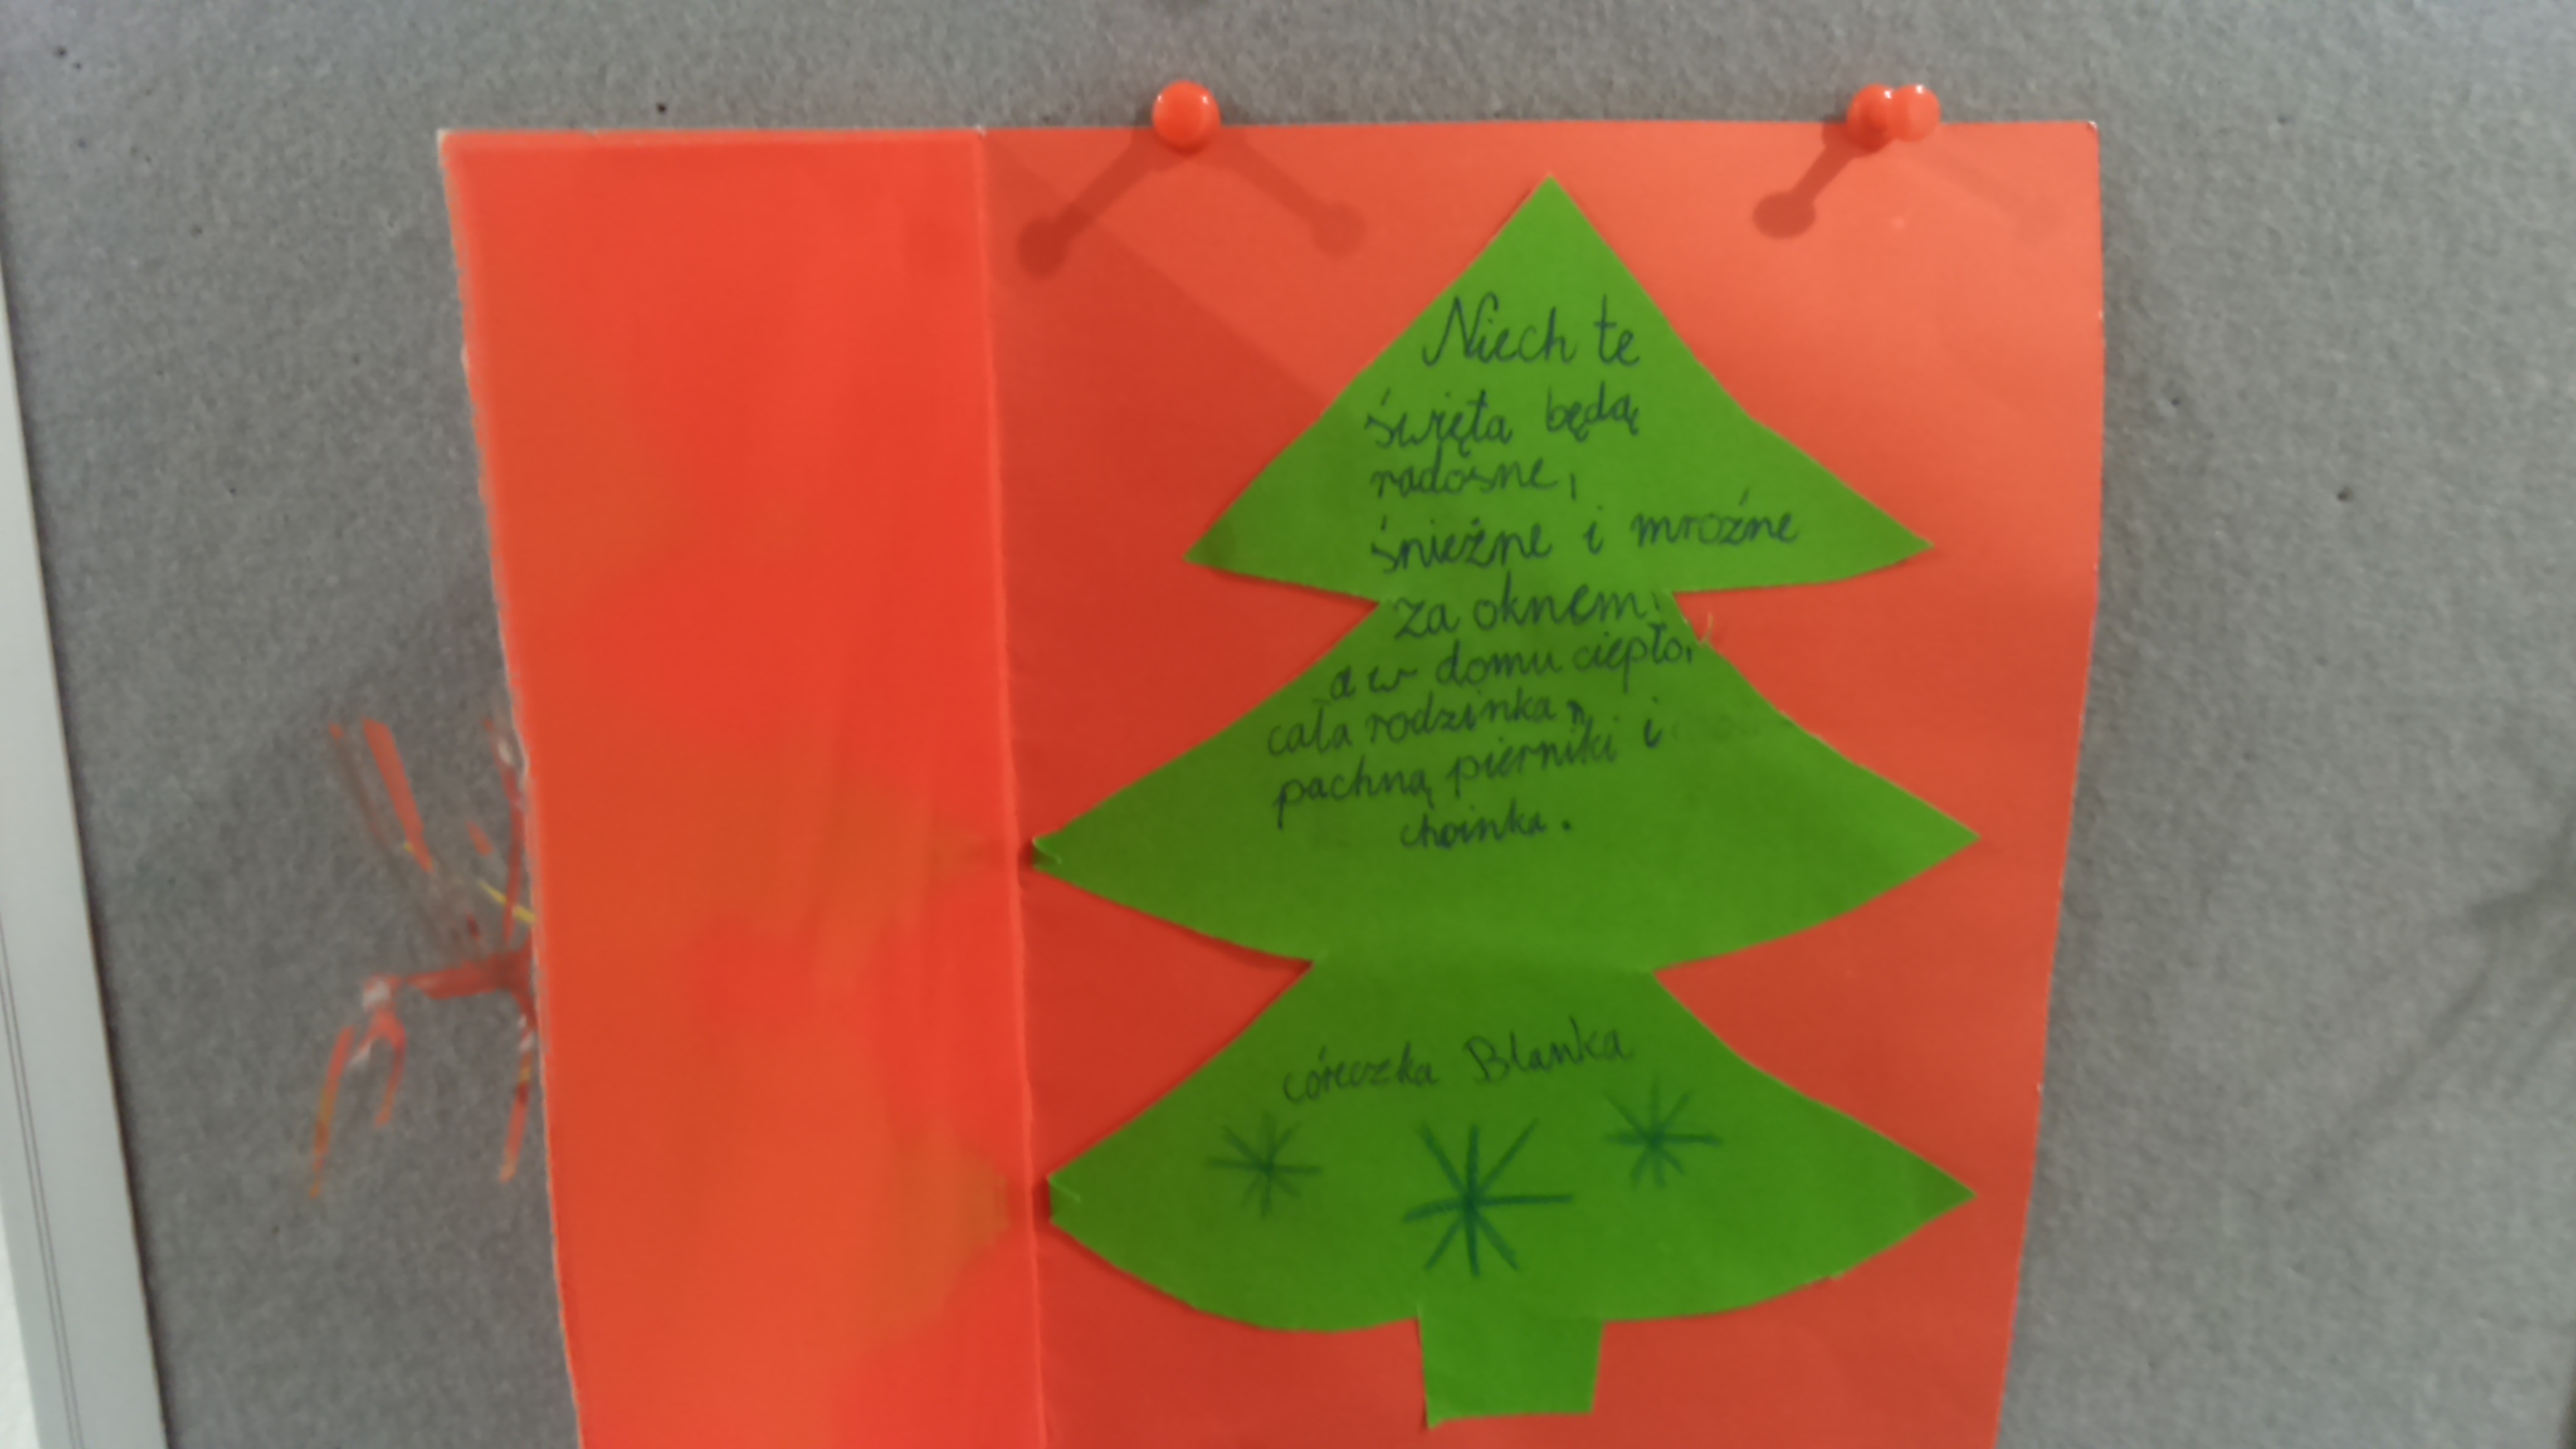 Niech te
święta będą
radosne,
śnieżne i mroźne
za oknem,
a w domu ciepło,
cała rodzinka,
pachną pierniki i
choinka.
córeczka Blanka